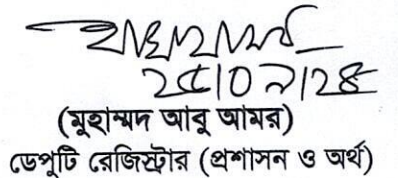 ২৫।০৯।২৪
(মুহাম্মদ আবু আমর)
ডেপুটি রেজিস্ট্রার (প্রশাসন ও অর্থ)